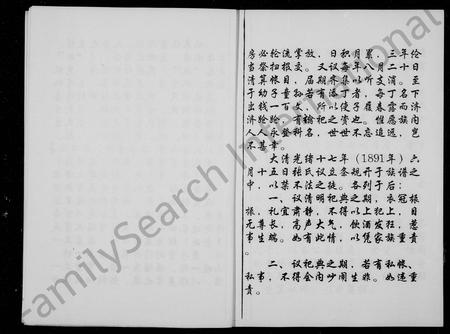 房必轮流掌放，日积月累，三年伦
当祭扫报交。又议每年八月二十日
清算帐目，届期齐集以听支消。至
于幼子童孙若有添丁者，每丁名下
出钱一百文，所以使子履春露而济
济跄跄，有输祀之资也。惟愿族内
人人永登科名，世世不忘追远，岂
不甚幸。
大清光绪十七年（1891年）六
月十五日张氏议立条规开于族谱之
中，以禁不法之徒。各列于后：
一、议清明祀典之期，衣冠
，礼宜肃静，不得以上祀上，目
无尊长，高声大气，饮酒发狂，惹
事生端。如有此情，以凭家族重责
。
二、议祀典之期，若有私帐、
私事，不得会内吵闹生非。如违重
责。
FamilySearch International